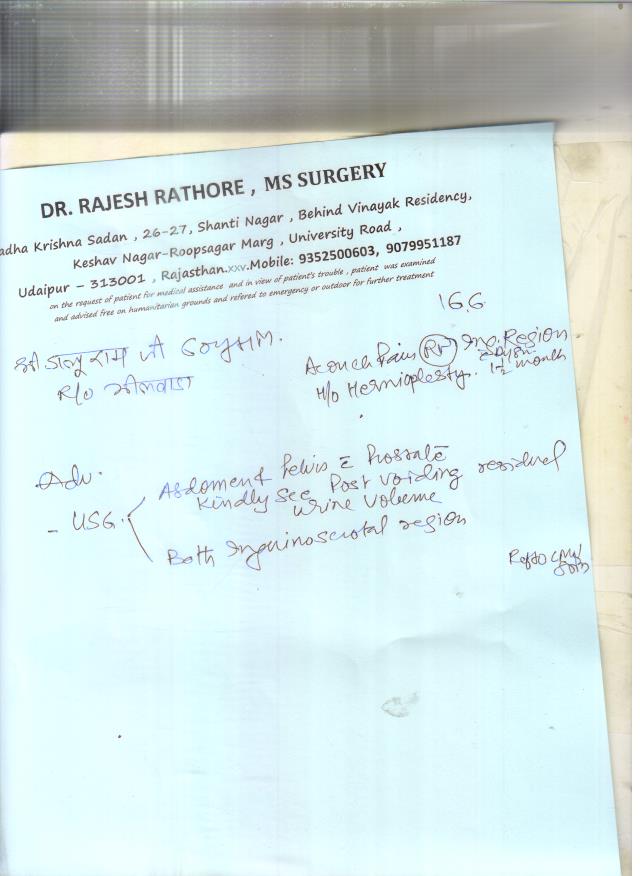 DR. RAJESH RATHORE , MS SURGERY
adha Krishna Sadan , 26-27, Shanti Nagar , Behind Vinayak Residency,
Keshav Nagar-Roopsagar Marg , University Road ,
Udaipur – 313001 , Rajasthan.xxv.Mobile: 9352500603, 9079951187
on the request of patient for medical assistance and in view of patient's trouble , patient was examined
and advised free on humanitarian grounds and refered to emergency or outdoor for further treatment
16.6
श्री राम जी 60y/M.
R/o भीलवाडा
Pain Rt Ing. Region
H/o Hernioplesty. 1½ month
Adv.
- USG.
Abdomen & Pelvis c̄ Prostate
Kindly See Post voiding residual
urine volume
Both Inguinoscrotal region